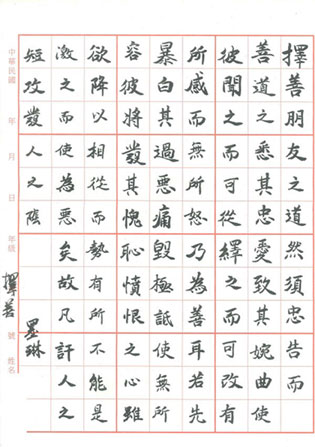 擇善朋友之道然須忠告而
善道之悉其忠愛致其婉曲使
彼聞之而可從繹之而可改有
所感而無所怒乃為善耳若先
暴白其過惡痛毀極詆使無所
容彼將發其愧恥憤恨之心雖
欲降以相從而勢有所不能是
激之而使為惡矣故凡訐人之
短攻發人之陰
墨琳
擇善
中華民國 年 月 日 年級 號 姓名